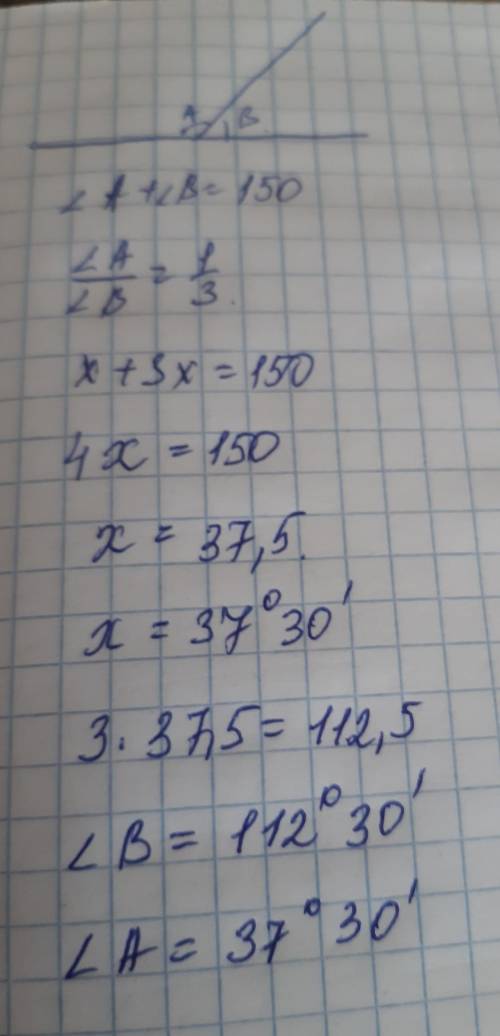 A B
∠A+∠B=150
∠A/∠B = 1/3.
x+3x=150
4x=150
x=37,5.
x=37°30'
3·37,5=112,5
∠B=112°30'
∠A=37°30'